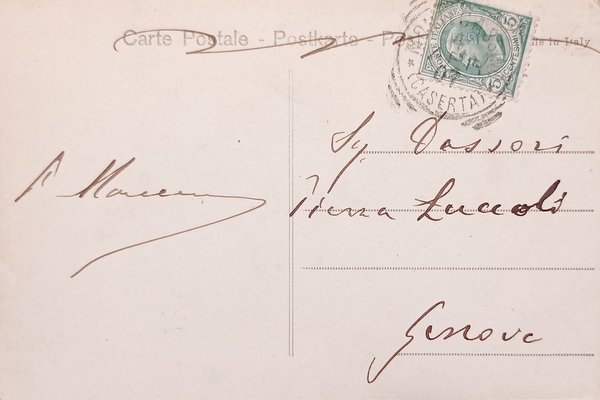 Carte Postale - Postkarte - Po
in Italy
(CASERTA)
Sg Dassori
Piazza Luccoli
Genova